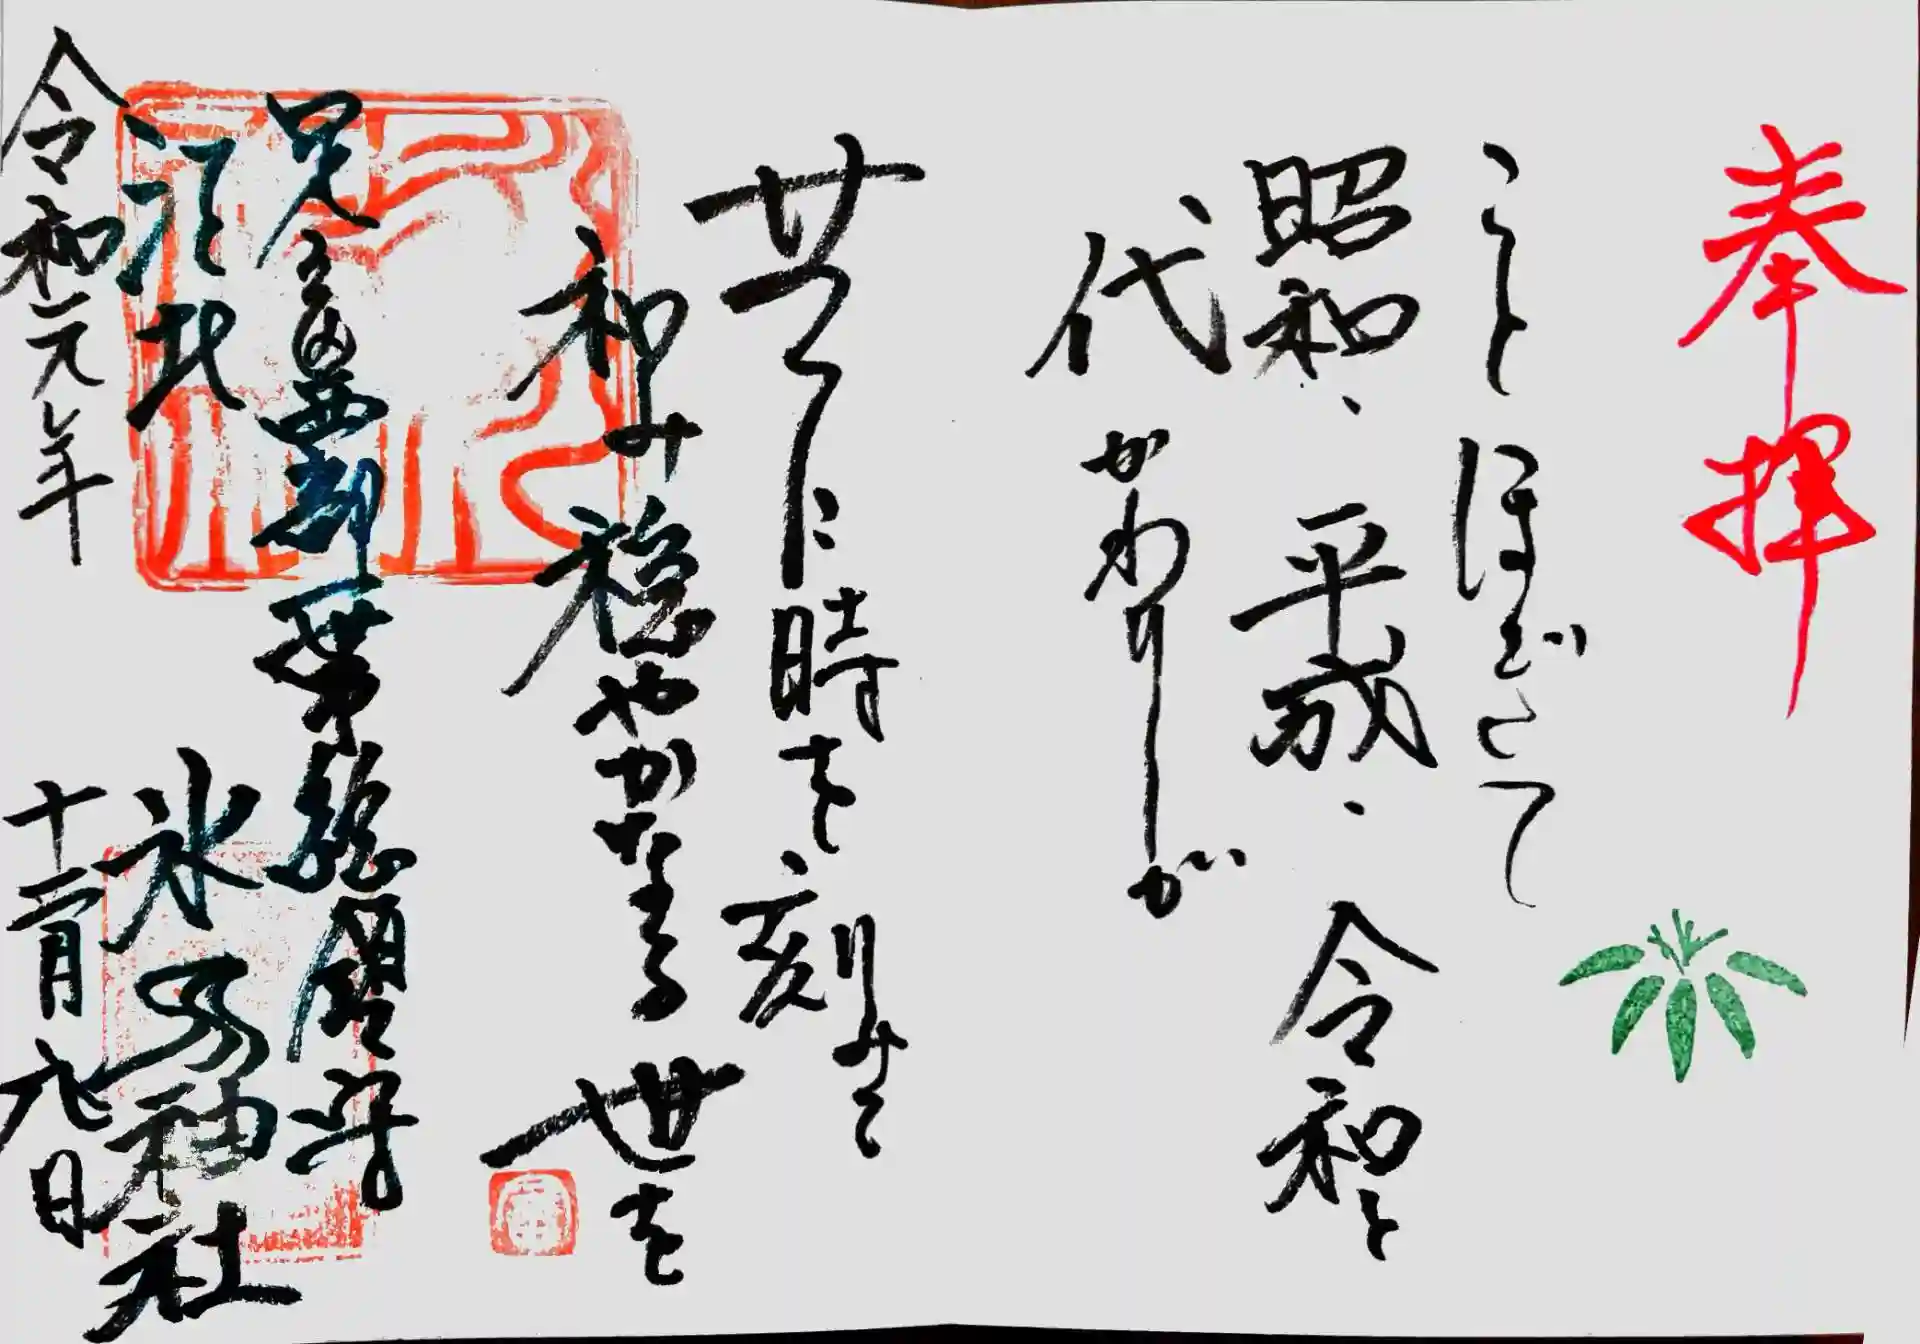 奉拝
ことほぎて
昭和、平成、令和と
代かわりしが
に時を刻みて
和み穏やかなる世を
総鎮守
江北 氷川神社
令和元年 十二月九日